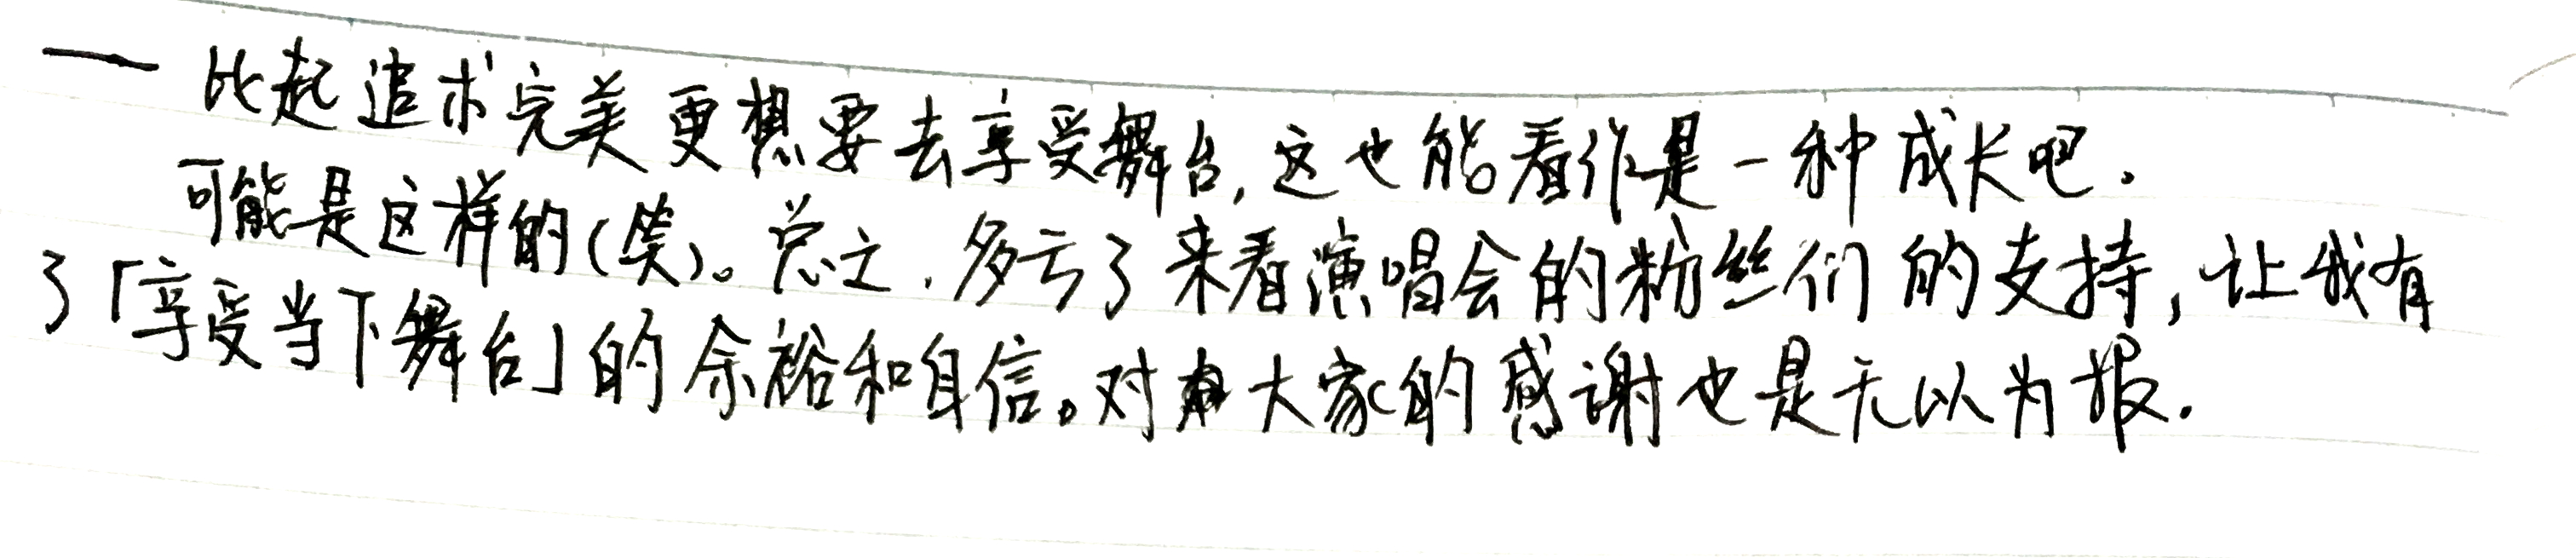 —— 比起追求完美更想要去享受舞台,这也能看作是一种成长吧.
可能是这样的(笑)。总之.多亏了来看演唱会的粉丝们的支持,让我有
了「享受当下舞台」的余裕和自信。对大家的感谢也是无以为报.